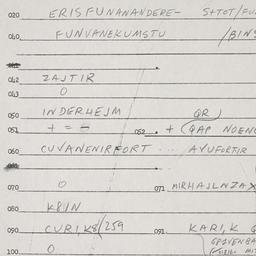 020 ERISFUNANANDERE- S+TOT/FU
040 FUNVANEKUMSTU /BINS
042 ZAJTIR
043 0
050 INDERHEJM QR
051 + = - 052 + (QAP NOEN
060 CUVANENIRFORT ... AVUFORTIR
070 0 071 MIRHAJLNZAX
080 K8IN
090 CURI,K8/259 091 KARI,K G
100 0